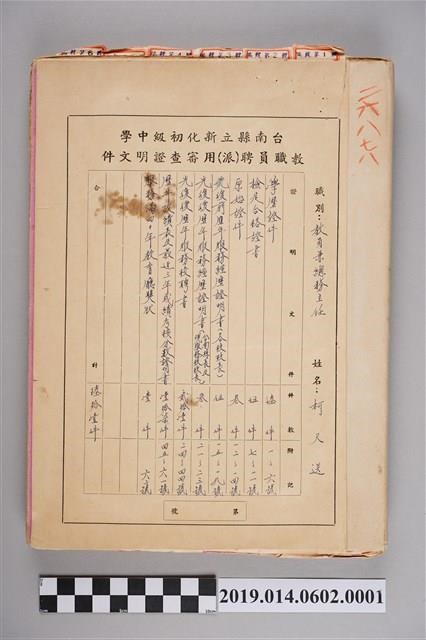 二六八七八
台南縣立新化初級中學
教職員聘(派)用審查證明文件
職別：教員兼總務主任
姓名：柯又送
證明文件 件數 附記
學歷證件 陸件 一～六號
檢定合格證書 伍件 七～一一號
原始證件 叁件 一二～一四號
光復前歷年服務經歷證明書(各校校長) 伍件 一五～一九號
光復後歷年服務經歷證明書 叁件 二一～二三號
光復後歷年服務校聘書 貳拾壹件 二四～四四號
歷年成績表及最近三年成績考核分數證明書 壹拾柒件 四五～六一號
年教育廳獎狀 壹件 六二號
合計 陸拾壹件
第 號
2019.014.0602.0001